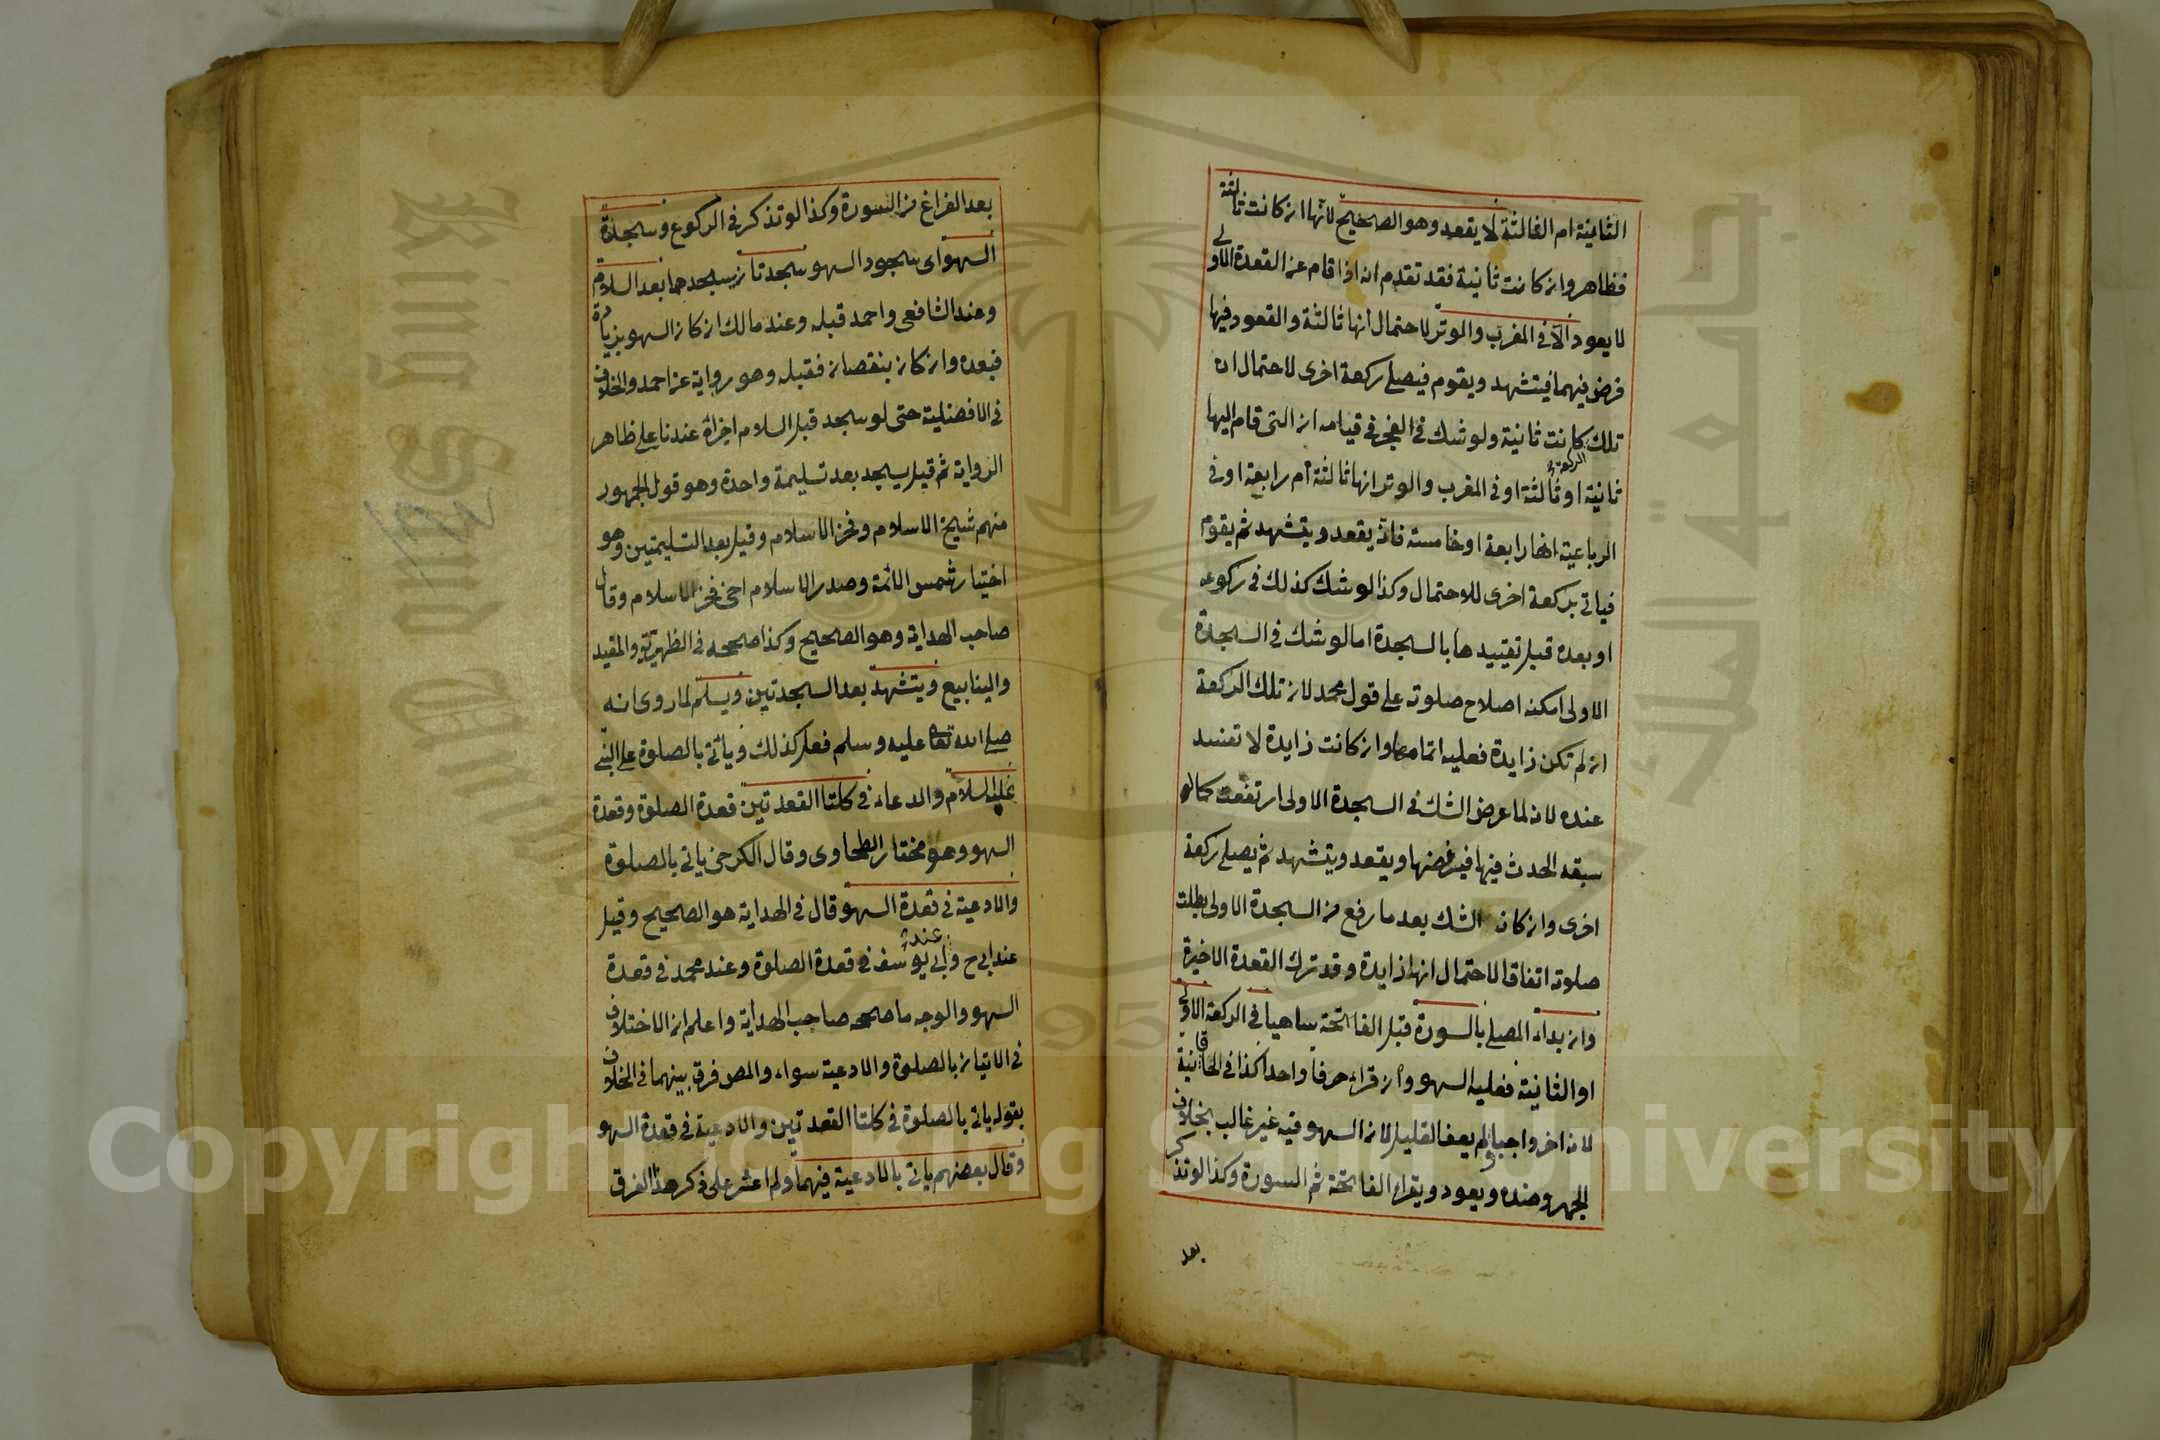 الثانية ام الثالثة لا يقعد وهو الصحيح لانها ان كانت ثالثة
فظاهر وان كانت ثانية فقد تقدم انه اذا قام عن القعدة الاولى
لا يعود الا في المغرب والوتر لاحتمال انها ثالثة والقعود فيها
فرض فيهما فيتشهد ويقوم فيصلي ركعة اخرى لاحتمال ان
تلك كانت ثانية ولو شك في الفجر في قيامه ان التي قام اليها
الركعة
ثانية او ثالثة او في المغرب والوتر انها ثالثة ام رابعة او في
الرباعية انها رابعة او خامسة فانه يقعد ويتشهد ثم يقوم
فياتي بركعة اخرى للاحتمال وكذا لو شك كذلك في ركوعه
او بعده قبل تقييدها بالسجدة اما لو شك في السجدة
الاولى امكنه اصلاح صلوته على قول محمد لان تلك الركعة
ان لم تكن زايدة فعليه اتمامها وان كانت زايدة لا تفسد
عنده لانه لما عرض الشك في السجدة الاولى ارتفعت كما لو
سبقه الحدث فيها فيرفضها ويقعد ويتشهد ثم يصلي ركعة
اخرى وان كان الشك بعد ما رفع من السجدة الاولى بطلت
صلوته اتفاقا لاحتمال انها زايدة وقد ترك القعدة الاخيرة
وان بداء المصلي بالسورة قبل الفاتحة ساهيا في الركعة الاولى
او الثانية فعليه السهو وان قراء حرفا واحدا كذا في الخانية
لانه اخر واجبا ولم يعف القليل لان السهو فيه غير غالب بخلاف
الجهر وضده ويعود ويقراء الفاتحة ثم السورة وكذا لو تذكر
بعد
بعد الفراغ من السورة وكذا لو تذكر في الركوع وسجدة
السهو اى سجود السهو سجدتان يسجدهما بعد السلام
وعند الشافعي واحمد قبله وعند مالك ان كان السهو بزيادة
فبعده وان كان بنقصان فقبله وهو رواية عن احمد والخلاف
في الافضلية حتى لو سجد قبل السلام اجزاه عندنا على ظاهر
الرواية ثم قيل يسجد بعد تسليمة واحدة وهو قول الجمهور
منهم شيخ الاسلام وفخر الاسلام وقيل بعد التسليمتين وهو
اختيار شمس الائمة وصدر الاسلام اخي فخر الاسلام وقال
صاحب الهداية وهو الصحيح وكذا صححه في الظهيرية والمفيد
والينابيع ويتشهد بعد السجدتين ويسلم لما روى انه
صلى الله تعالى عليه وسلم فعل كذلك ويأتي بالصلوة على النبي
عليه السلام والدعاء في كلتا القعدتين قعدة الصلوة وقعدة
السهو وهو مختار الطحاوى وقال الكرخي ياتي بالصلوة
والادعية في قعدة السهو قال في الهداية هو الصحيح وقيل
عنده
عند ابي ح وابي يوسف في قعدة الصلوة وعند محمد في قعدة
السهو والوجه ما صححه صاحب الهداية واعلم ان الاختلاف
في الاتيان بالصلوة والادعية سواء والمص فرق بينهما في الخلاف
بقوله ياتي بالصلوة في كلتا القعدتين والادعية في قعدة السهو
وقال بعضهم ياتي بالادعية فيهما ولم اعثر على ذكر هذا الفرق
Copyright © King Saud University
King Saud University
جامعة الملك